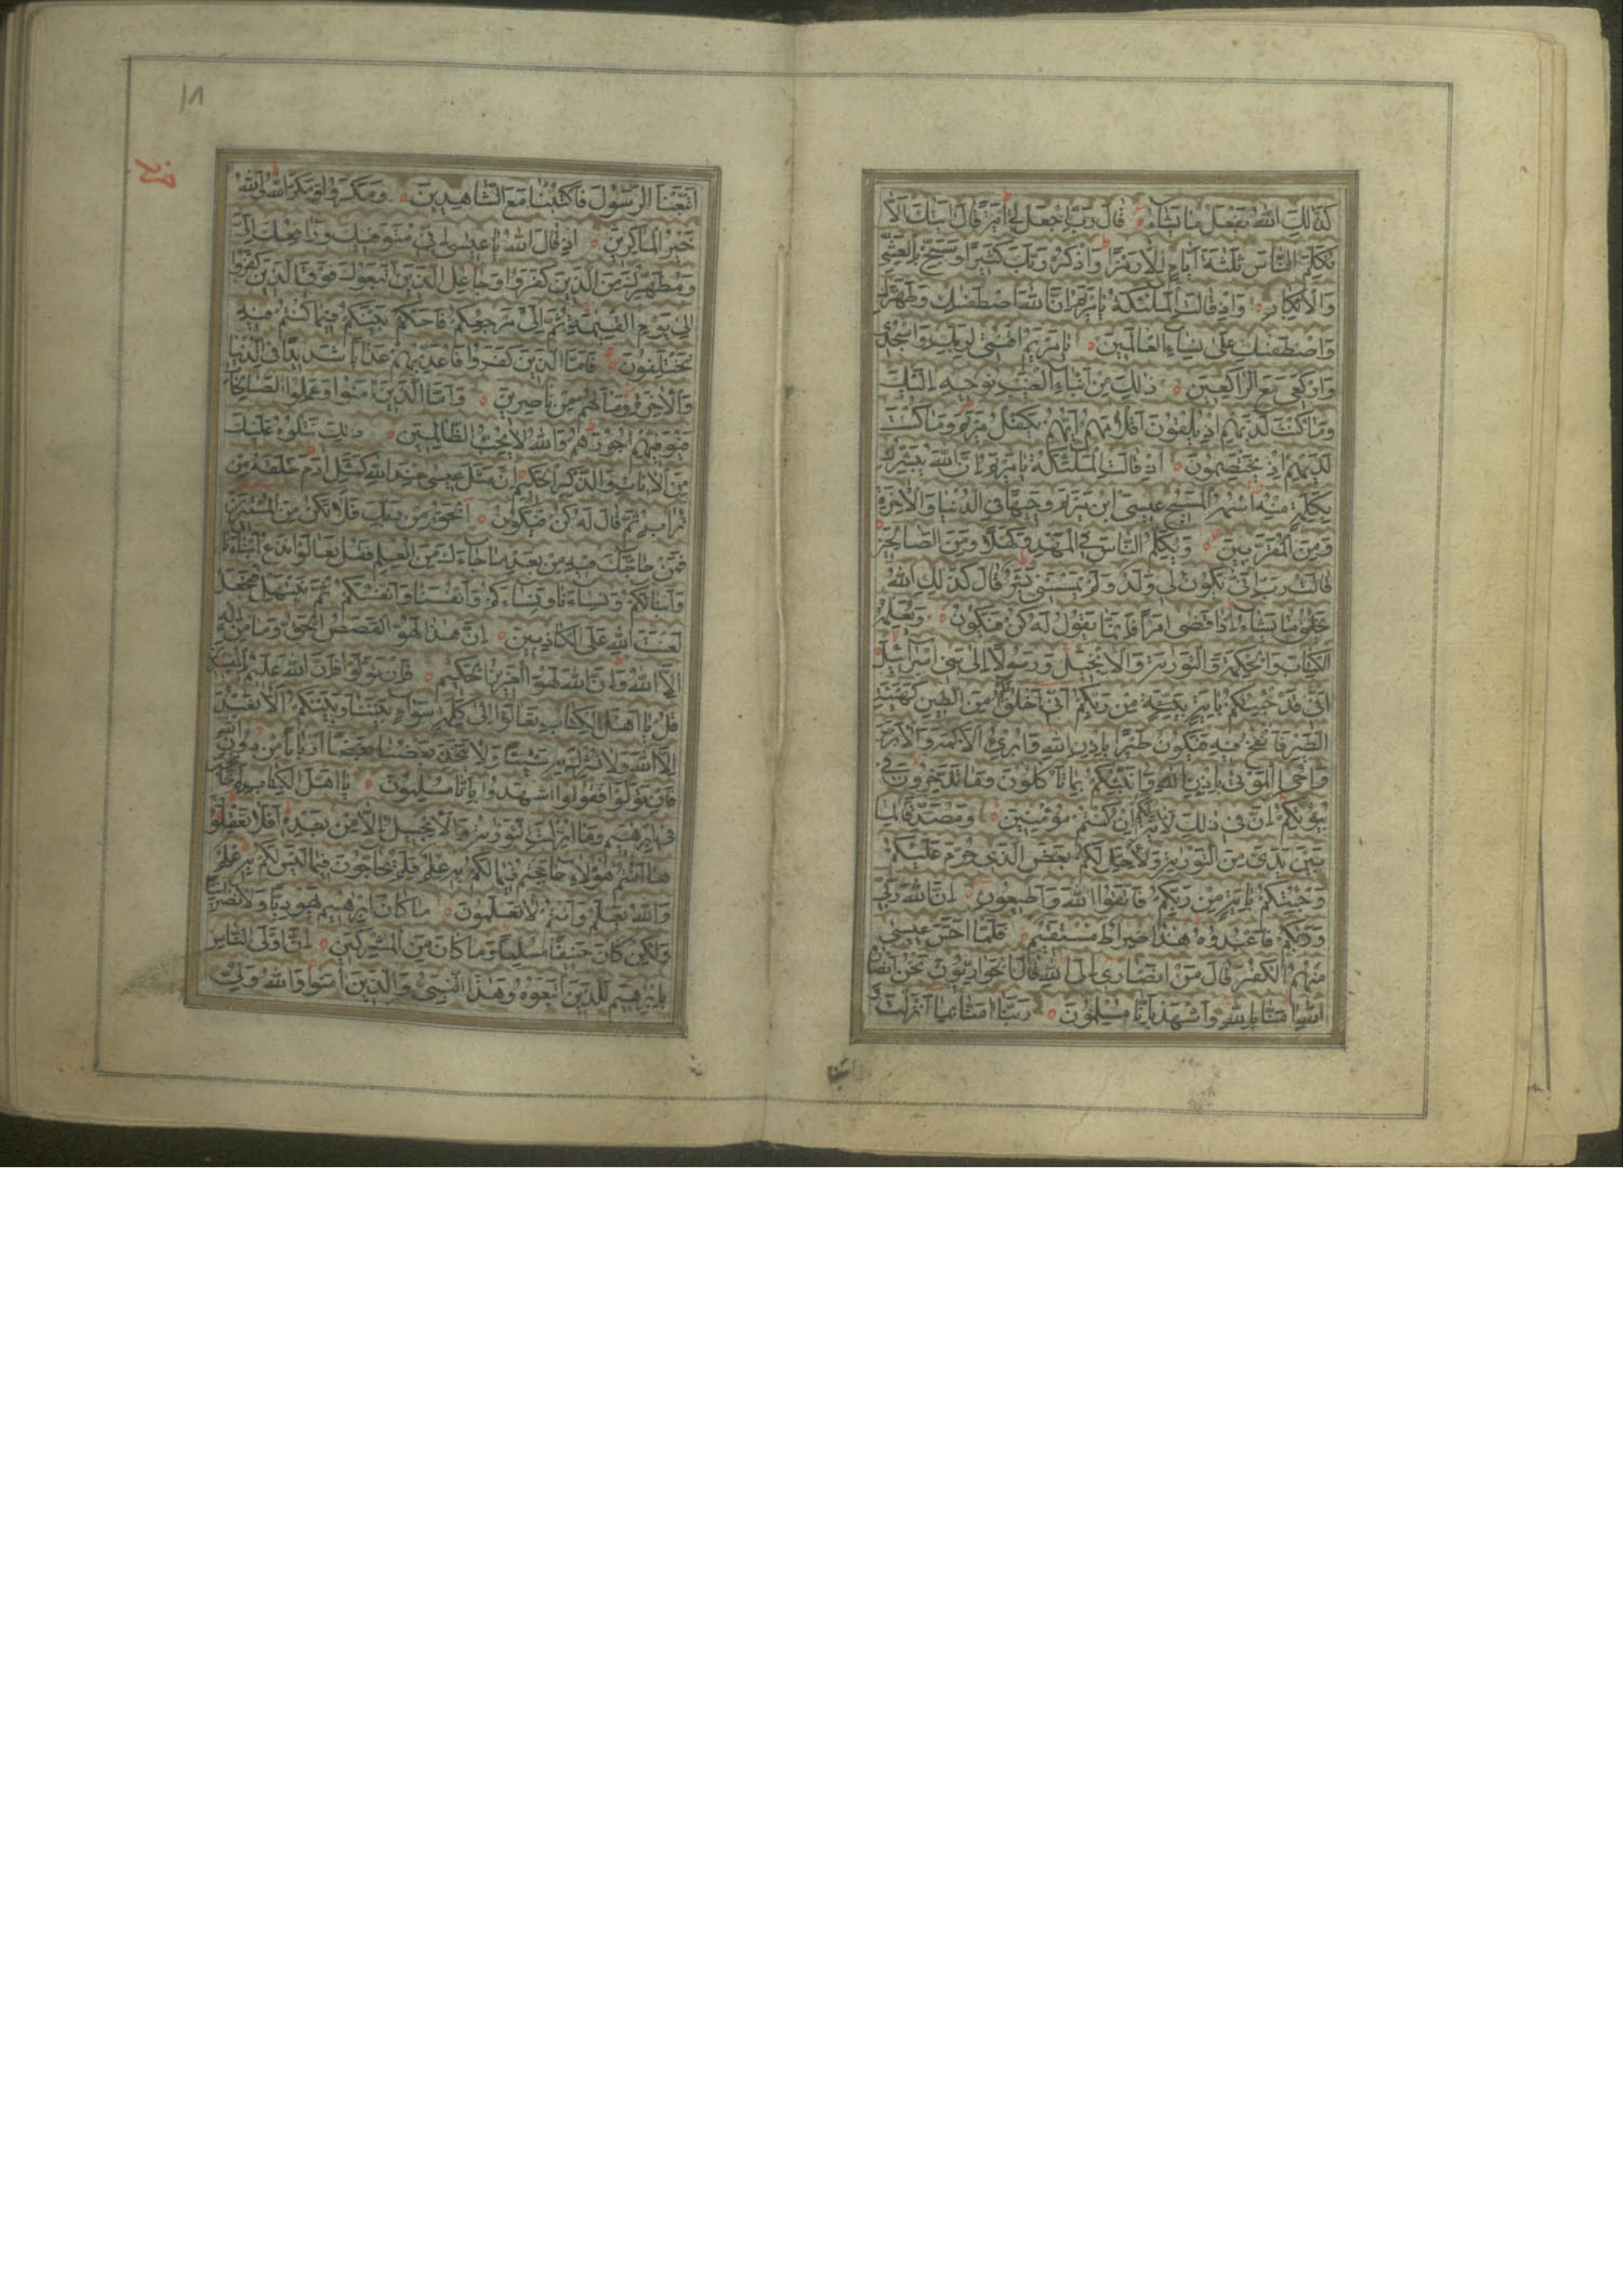 كذلك الله يفعل ما يشاء قال رب اجعل لي اية قال ايتك الا
تكلم الناس ثلثة ايام الا رمزا واذكر ربك كثيرا وسبح بالعشي
والابكار واذ قالت الملئكة يا مريم ان الله اصطفيك وطهرك
واصطفيك على نساء العالمين يا مريم اقنتي لربك واسجدي
واركعي مع الراكعين ذلك من انباء الغيب نوحيه اليك
وما كنت لديهم اذ يلقون اقلامهم ايهم يكفل مريم وما كنت
لديهم اذ يختصمون اذ قالت الملئكة يا مريم ان الله يبشرك
بكلمة منه اسمه المسيح عيسى ابن مريم وجيها في الدنيا والاخرة
ومن المقربين ويكلم الناس في المهد وكهلا ومن الصالحين
قالت رب انى يكون لي ولد ولم يمسسني بشر قال كذلك الله
يخلق ما يشاء اذا قضى امرا فانما يقول له كن فيكون ويعلمه
الكتاب والحكمة والتورية والانجيل ورسولا الى بني اسرائيل
اني قد جئتكم باية من ربكم اني اخلق لكم من الطين كهيئة
الطير فانفخ فيه فيكون طيرا باذن الله وابرئ الاكمه والابرص
واحي الموتى باذن الله وانبئكم بما تاكلون وما تدخرون في
بيوتكم ان في ذلك لاية لكم ان كنتم مؤمنين ومصدقا لما
بين يدي من التورية ولاحل لكم بعض الذي حرم عليكم
وجئتكم باية من ربكم فاتقوا الله واطيعون ان الله ربي
وربكم فاعبدوه هذا صراط مستقيم فلما احس عيسى
منهم الكفر قال من انصاري الى الله قال الحواريون نحن انصار
الله امنا بالله واشهد بانا مسلمون ربنا امنا بما انزلت و
اتبعنا
١٨
اتبعنا الرسول فاكتبنا مع الشاهدين ومكروا ومكر الله والله
خير الماكرين اذ قال الله يا عيسى اني متوفيك ورافعك الي
ومطهرك من الذين كفروا وجاعل الذين اتبعوك فوق الذين كفروا
الى يوم القيمة ثم الي مرجعكم فاحكم بينكم فيما كنتم فيه
تختلفون فاما الذين كفروا فاعذبهم عذابا شديدا في الدنيا
والاخرة وما لهم من ناصرين واما الذين امنوا وعملوا الصالحات
فيوفيهم اجورهم والله لا يحب الظالمين ذلك نتلوه عليك
من الايات والذكر الحكيم ان مثل عيسى عند الله كمثل ادم خلقه من
تراب ثم قال له كن فيكون الحق من ربك فلا تكن من الممترين
فمن حاجك فيه من بعد ما جاءك من العلم فقل تعالوا ندع ابناءنا
وابناءكم ونساءنا ونساءكم وانفسنا وانفسكم ثم نبتهل فنجعل
لعنت الله على الكاذبين ان هذا لهو القصص الحق وما من اله
الا الله وان الله لهو العزيز الحكيم فان تولوا فان الله عليم بالمفسدين
قل يا اهل الكتاب تعالوا الى كلمة سواء بيننا وبينكم الا نعبد
الا الله ولا نشرك به شيئا ولا يتخذ بعضنا بعضا اربابا من دون الله
فان تولوا فقولوا اشهدوا بانا مسلمون يا اهل الكتاب لم تحاجون
في ابرهيم وما انزلت التورية والانجيل الا من بعده افلا تعقلون
ها انتم هؤلاء حاججتم فيما لكم به علم فلم تحاجون فيما ليس لكم به علم
والله يعلم وانتم لا تعلمون ما كان ابرهيم يهوديا ولا نصرانيا
ولكن كان حنيفا مسلما وما كان من المشركين ان اولى الناس
بابرهيم للذين اتبعوه وهذا النبي والذين امنوا والله ولي